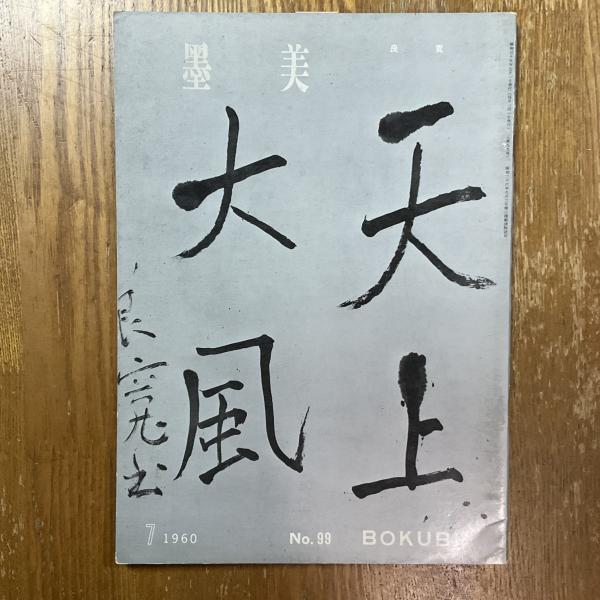 墨美
良寛
天上
大風
良寛書
7 1960
No. 99
BOKUBI